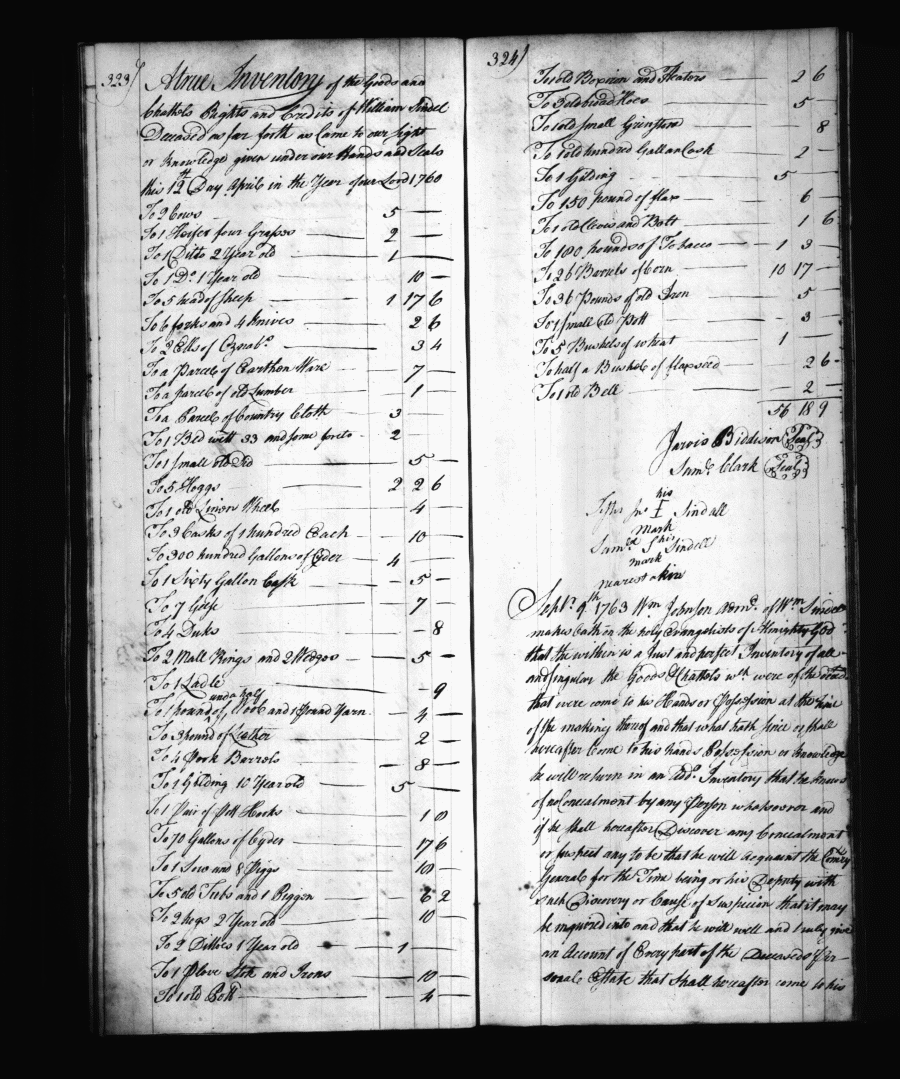 323)
A True Inventory of the Goods and
Chattels Rights and Credits of William Sindel
Deceased as far forth as Came to our Sight
or knowledge given under our Hands and Seals
this 12th Day April in the Year of our Lord 1760
To 2 Cows 5 —
To 1 Heifer four Grasses 2 —
To 1 Ditto 2 Year old 1 —
To 1 Do. 1 Year old 10 —
To 5 head of Sheep 1 17 6
To 6 forks and 4 knives 2 6
To 2 Ells of Oznabs. 3 4
To a Parcel of Earthen Ware 7 —
To a parcel of old Lumber 1 —
To a Parcel of Country Cloth 3
To 1 Bed with 33 and some 2
To 1 Small old Bed 5 —
To 5 Hoggs 2 2 6
To 1 old Linen Wheel 4 —
To 3 Casks of 1 hundred Each 10 —
To 300 hundred Gallons of Cyder 4 —
To 1 Sixty Gallon Cask 5 —
To 7 Geese 7 —
To 4 Duks 8
To 2 Mall Rings and 2 Wedges 5 —
To 1 Ladle 9
To 1 pound and a half of Wool and 1 Pound Yarn 4 —
To 3 pound of Leather 2 —
To 4 Pork Barrels 8 —
To 1 Gilding 10 Year old 5 —
To 1 Pair of Pott Hooks 1 0
To 70 Gallons of Cyder 17 6
To 1 Sow and 8 Piggs 10 —
To 5 old Tubs and 1 Piggon 6 2
To 2 hogs 2 Year old 10 —
To 2 Dittoes 1 Year old 1 —
To 1 Plow Stok and Irons 10 —
To 1 old Pott 4 —
324)
To old Box iron and Heators 2 6
To 3 old broad Hoes 5 —
To 1 old small Grinstone 8
To 1 old hundred Gallan Cask 2 —
To 1 Gilding 5
To 150 pound of flax 6 —
To 1 old and Bolt 1 6
To 180 pounds of Tobacco 1 3 —
To 26 Barrels of Corn 10 17 —
To 36 Pounds of old Iron 5 —
To 1 small old Pott 3 —
To 5 Bushels of wheat 1
To half a Bushel of flaxseed 2 6
To 1 old Bell 2 —
56 18 9
Jarvis Biddison (Seal)
Saml. Clark (Seal)
his
Jno. I Sindall
mark
Saml. S his Sindell
mark
nearest akin
Septr. 9th 1763 Wm Johnson Admr. of Wm Sindell
makes Oath on the holy Evangelists of Almighty God
that the within is a Just and perfect Inventory of all
and singular the Goods & Chattels wch. were of the decd.
that were come to his Hands or Possession at the Time
of the making thereof and that what hath since or shall
hereafter Come to his hands Possession or knowledge
he will return in an Addl. Inventory that he knows
of no Concealment by any Person whatsoever and
if he shall hereafter Discover any Concealment
or suspect any to be that he will acquaint the Comry
General for the Time being or his Deputy with
such Discovery or Cause of Suspicion that it may
be inquired into and that he will well and truly give
an Account of Every part of the Deceaseds Per-
sonale Estate that shall hereafter come to his